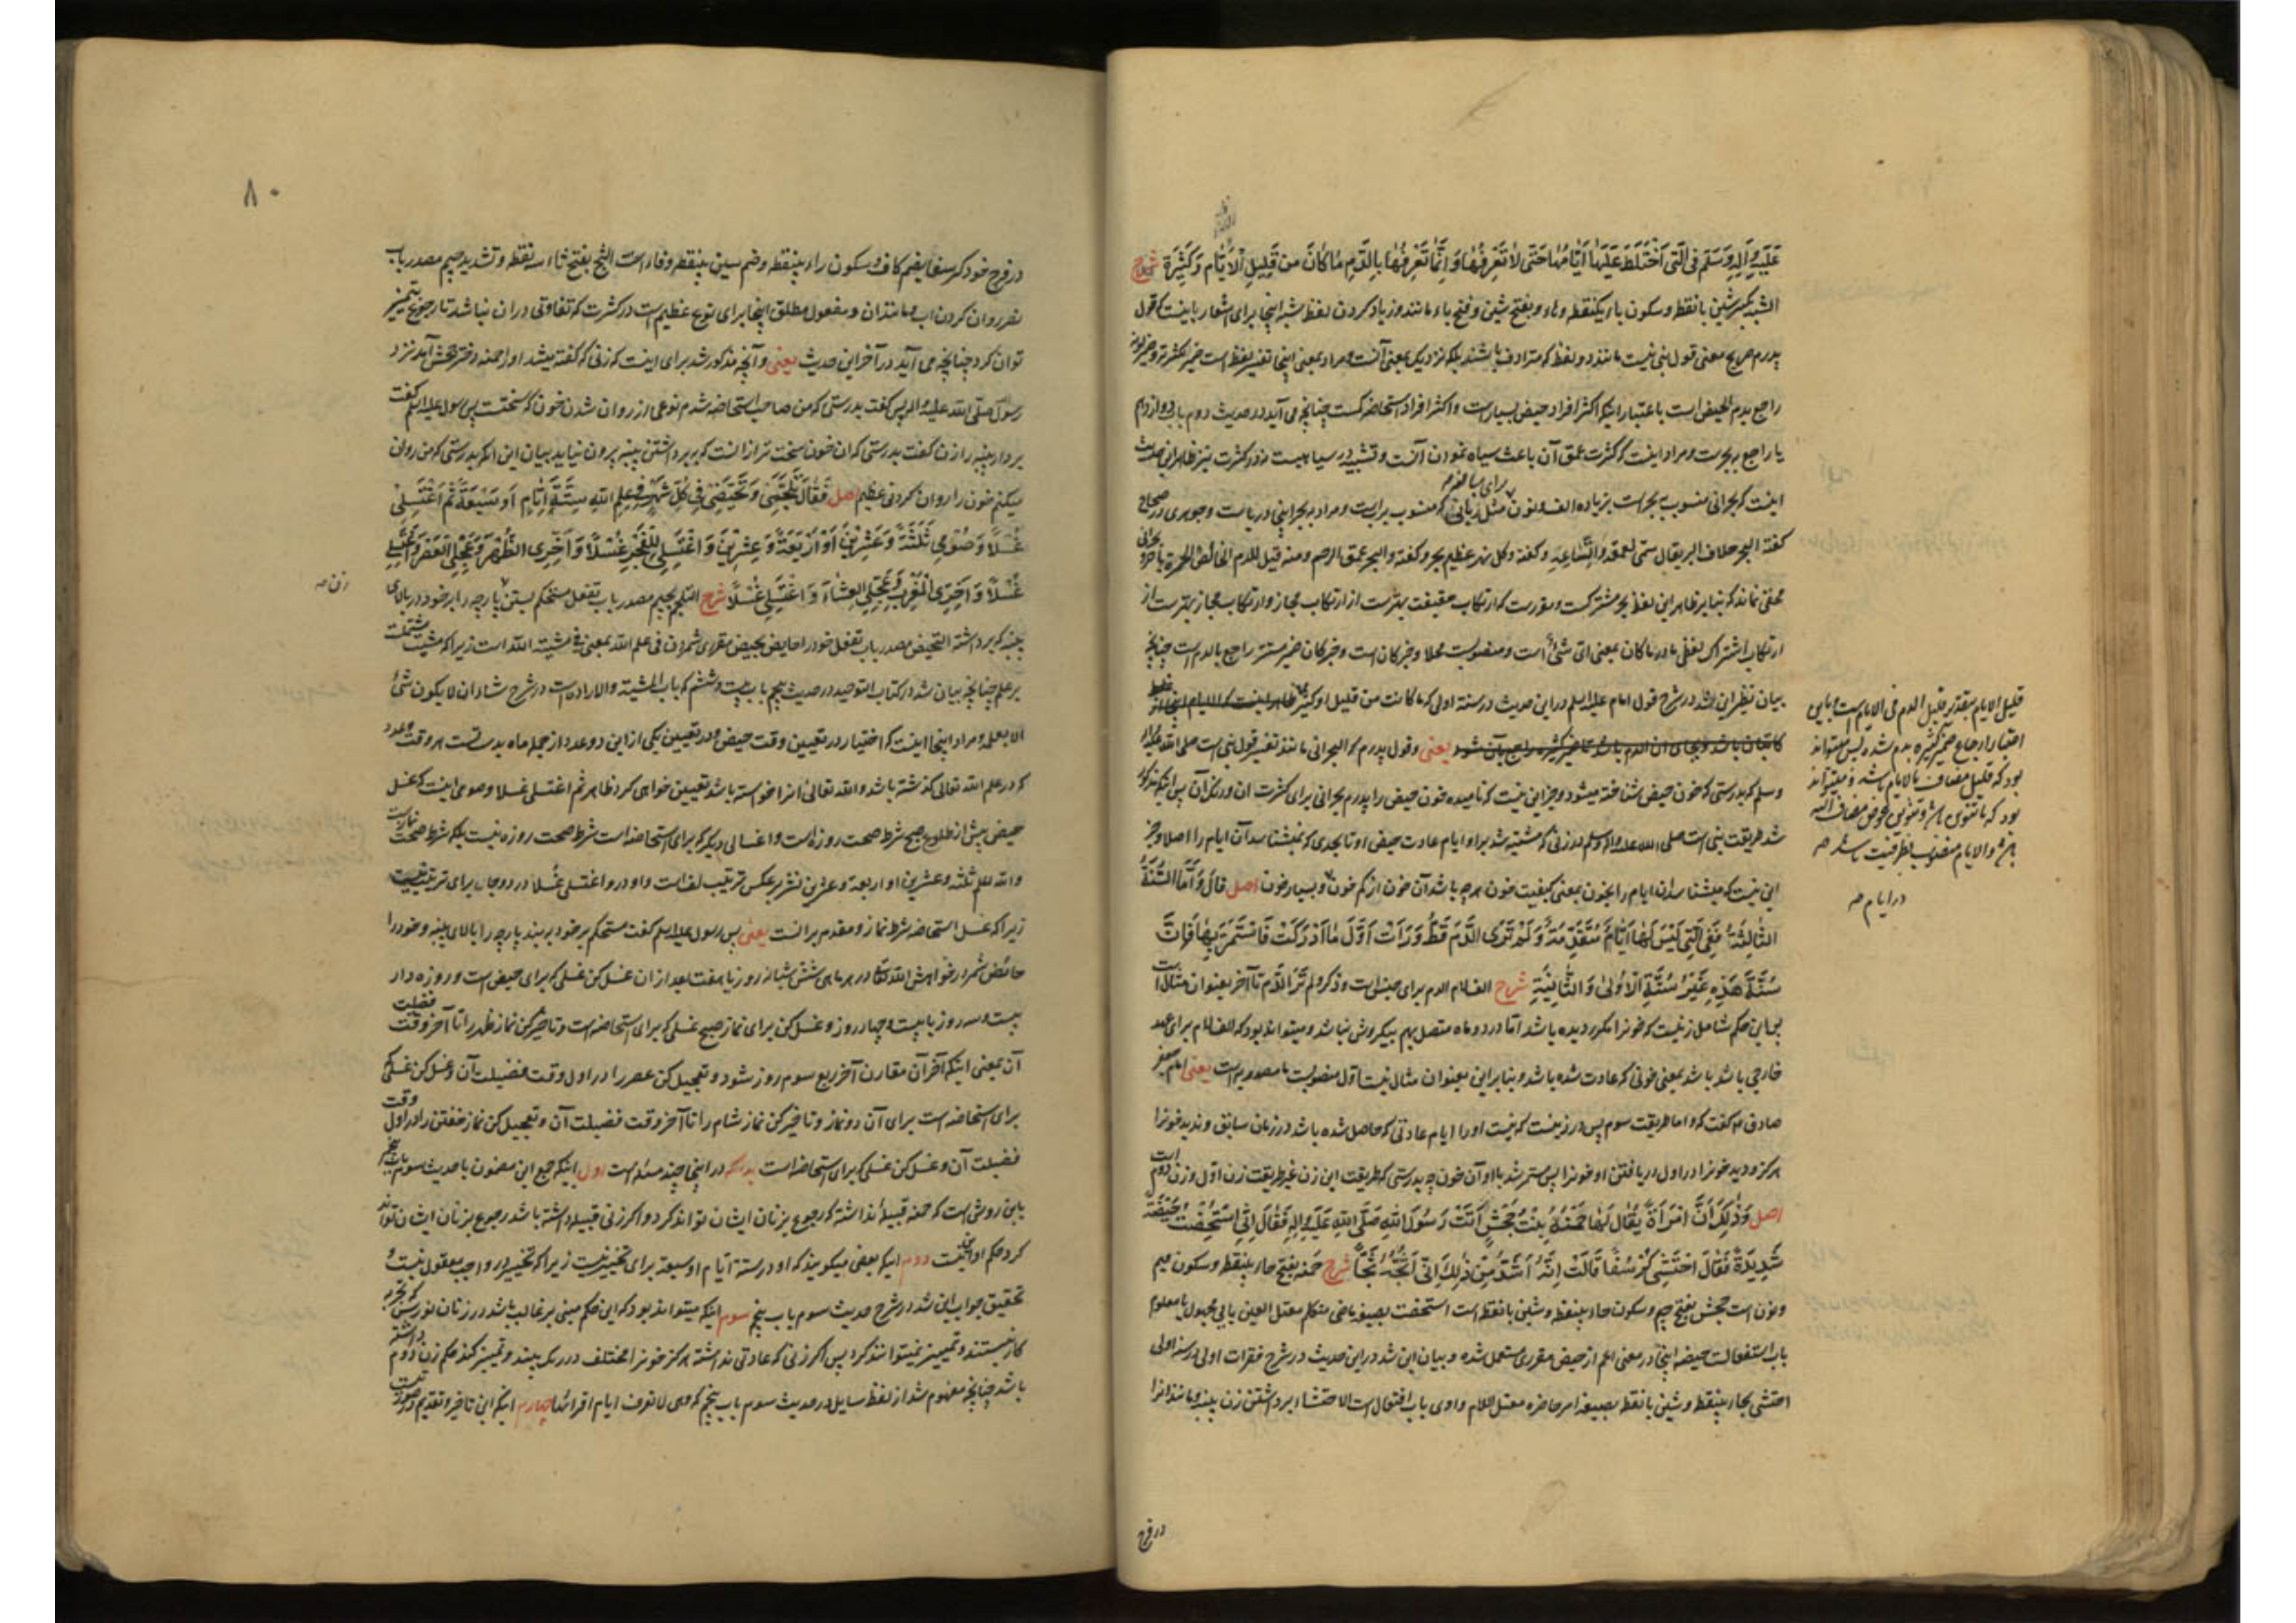 عَلَيْهِ وَآلِهِ وَسَلَّمَ فِي الَّتِي اخْتَلَطَ عَلَيْهَا أَيَّامُهَا حَتَّى لَا تَعْرِفُهَا وَإِنَّمَا تَعْرِفُهَا بِالدَّمِ مَا كَانَ مِنْ قَلِيلِ الْأَيَّامِ وَكَثِيرَةٍ شرح
بانقطه و سکون باء یکنقطه و هاء و بفتح شین و فتح باء مانند و زیاد کردن لفظ شبه اینجا برای اشعار باینست که قول
معنی قول نبی نیست مانند دو لفظ که مترادف باشند بلکه نزدیک بمعنی آنست و مراد بمعنی اینجا
راجع بدم الحیض است باعتبار اینکه اکثر افراد حیض بسیار است و اکثر افراد استحاضه کمست چنانچه می آید در حدیث دوم باب
یا راجع ببحر است و مراد اینست که کثرت عمق آن باعث سیاه نمودن آنست و تشبیه در سیاهیست نه در کثرت نیز ظاهر این حدیث
برای مبالغه صه
اینست که بحرانی منسوب ببحر است بزیاده الف و نون مثل ربانی که منسوب برب است و مراد ببحر اینجا دریاست و جوهری در صحاح
گفته البحر خلاف البر یقال سمی لعمقه و اتساعه و گفته و کل نهر عظیم بحر و گفته و البحر عمق الرحم و منه قیل للدم الخالص الحمرة
مخفی نماند که بنابر ظاهر این لفظ بحر مشترکست و مقررست که ارتکاب حقیقت بهترست از ارتکاب مجاز و ارتکاب مجاز بهترست از
ارتکاب اشتراک لفظی ما در ما کان بمعنی ای شیء است و منصوبست محلا و خبر کان است و ضمیر مستتر راجع بالدم است چنانچه
بیان نظیر این شد در شرح قول امام علیه السلام در این حدیث در سنه اولی که ما کانت من قلیل او کثیر
یعنی و قول پدرم که البحرانی مانند تغیر قول نبی است صلی الله علیه وآله
وسلم که بدرستی که خون حیض شناخته میشود و جز این نیست که نامیده خون حیض را پدرم بحرانی برای کثرت آن و رنک آن پس
شد طریقت نبی است صلی الله علیه وآله وسلم در زنی که مشتبه شد براو ایام عادت حیض او تا بحدی که نمیشناسد آن ایام را اصلا و جز
این نیست که میشناسد آن ایام را بخون بمعنی کیفیت خون هرچه باشد آن خون از کم خون و بسیار خون اصل قَالَ وَأَمَّا السُّنَّةُ
الثَّالِثَةُ فَفِي الَّتِي لَيْسَ لَهَا أَيَّامٌ مُتَقَدِّمَةٌ وَلَمْ تَرَى الدَّمَ قَطُّ وَرَأَتْ أَوَّلَ مَا أَدْرَكَتْ فَاسْتَمَرَّ بِهَا فَإِنَّ
سُنَّةَ هَذِهِ غَيْرُ سُنَّةِ الْأُولَى وَالثَّانِيَةِ شرح الف لام الدم برای جنس است و ذکر ولم تر الدم تا آخر بعنوان مثال است
پس این حکم شامل زنیست که خون را مکرر دیده باشد اما در دو ماه متصل بهم بیکروش نباشد و میتواند بود که الف لام برای عهد
خارجی باشد بمعنی خونی که عادت شده باشد و بنابر این بعنوان مثال نیست اول منصوبست ما مصدریه است یعنی امام جعفر
صادق ع گفت که و اما طریقت سوم پس در زنیست که نیست او را ایام عادتی که حاصل شده باشد در زمان سابق و ندید خون را
هرگز و دید خون را در اول دریافتن او خون را پس مستمر شد با او آن خون چه بدرستی که طریقت این زن غیر طریقت زن اول و زن دوم است
اصل وَذَلِكَ أَنَّ امْرَأَةً يُقَالُ لَهَا حَمْنَةُ بِنْتُ جَحْشٍ أَتَتْ رَسُولَ اللَّهِ صَلَّى اللَّهُ عَلَيْهِ وَآلِهِ فَقَالَ إِنِّي اسْتُحِضْتُ حَيْضَةً
شَدِيدَةً فَقَالَ احْتَشِي كُرْسُفًا قَالَتْ إِنَّهُ أَشَدُّ مِنْ ذَلِكَ إِنِّي أَثُجُّهُ ثَجًّا شرح حمنه بفتح حاء بینقطه و سکون میم
و نون است جحش بفتح جیم و سکون حاء بینقطه و شین بانقطه است استحضت بصیغه ماضی متکلم معتل العین یایی مجهول یا معلوم
باب استفعالست حیضه اینجا در معنی اعم از حیض مقرری مستعمل شده و بیان این شد در این حدیث در شرح فقرات اولی در سنه اولی
احتشی بحاء بینقطه و شین بانقطه بصیغه امر حاضره معتل اللام واوی باب افتعال است الاحتشاء برداشتن زن پنبه و مانند آنرا
قلیل الایام بتقدیر قلیل الدم فی الایام است
اعتبار ارجاع ضمیر کثیره بدم شد پس میتواند
بود که قلیل مضاف بالایام باشد و میتواند
بود که با تنوین باشد و تنوین عوض مضاف الیه
باشد و الایام منصوب بظرفیت باشد صه
در ایام صه
در فرج
۸۰
در فرج خود کرسف بضم کاف و سکون راء بینقطه و ضم سین بینقطه و فاء است الثج بفتح ثاء سه نقطه و تشدید جیم مصدر باب
نصر روان کردن آب و مانند آن و مفعول مطلق اینجا برای نوع عظیم است در کثرت که تفاوتی در آن نباشد تا رجوع بتمییز
توان کرد چنانچه می آید در آخر این حدیث یعنی و آنچه مذکور شد برای اینست که زنی که گفته میشد او را حمنه دختر جحش آمد نزد
رسول الله صلی الله علیه وآله پس گفت بدرستی که من صاحب استحاضه شدم نوعی از روان شدن خون که سختست پس رسول علیه السلام گفت
بردار پنبه را زن گفت بدرستی که آن خون سخت تر از آنست که ببرداشتن پنبه بیرون نیاید بیان این آنکه بدرستی که من روان
میکنم خون را روان کردنی عظیم اصل فَقَالَ تَلَجَّمِي وَتَحَيَّضِي فِي كُلِّ شَهْرٍ فِي عِلْمِ اللَّهِ سِتَّةَ أَيَّامٍ أَوْ سَبْعَةً ثُمَّ اغْتَسِلِي
غُسْلًا وَصُومِي ثَلَثَةً وَعِشْرِينَ أَوْ أَرْبَعَةً وَعِشْرِينَ وَاغْتَسِلِي لِلْفَجْرِ غُسْلًا وَأَخِّرِي الظُّهْرَ وَعَجِّلِي الْعَصْرَ وَاغْتَسِلِي
غُسْلًا وَأَخِّرِي الْمَغْرِبَ وَعَجِّلِي الْعِشَاءَ وَاغْتَسِلِي غُسْلًا شرح التلجم بجیم مصدر باب تفعل مستحکم بستن پارچه را بر خود در بالای
زن صه
پنبه که برداشته التحیض مصدر باب تفعل خود را حایض بحیض مقرری شمردن فی علم الله بمعنی فی مشیة الله است زیرا که مشیت مشتملست
بر علم چنانچه بیان شد در کتاب التوحید در حدیث پنجم باب بیست و ششم که باب المشیة والارادة است در شرح شاء ان لا یکون شیء
الا بعلمه و مراد اینجا اینست که اختیار در تعیین وقت حیض و در تعیین یکی از این دو عدد از جمله ماه بدست تست هر وقت و عدد
که در علم الله تعالی گذشته باشد و الله تعالی آنرا خواسته باشد تعیین خواهی کرد ظاهر ثم اغتسلی غسلا وصومی اینست که غسل
حیض پیش از طلوع صبح شرط صحت روزه است و اغسالی دیگر که برای استحاضه است شرط صحت روزه نیست بلکه شرط صحت نماز است
ثلثه و عشرین او اربعه و عشرین نشر بر عکس ترتیب لف است واو در واغتسلی غسلا در دو جا برای ترتیب نیست
زیرا که غسل استحاضه شرط نماز و مقدم برانست یعنی پس رسول علیه السلام گفت مستحکم بر خود ببند پارچه را بالای پنبه و خود را
حائض شمر در خواهش الله تعالی در هر ماهی شش شبانه روز یا هفت بعد از آن غسل کن غسلی که برای حیض است و روزه دار
بیست و سه روز یا بیست و چهار روز و غسل کن برای نماز صبح غسلی که برای استحاضه است و تاخیر کن نماز ظهر را تا آخر وقت فضیلت
آن بمعنی اینکه آخر آن مقارن آخر ربع سوم روز شود و تعجیل کن عصر را در اول وقت فضیلت آن و غسل کن غسلی که
برای استحاضه است برای آن دو نماز و تاخیر کن نماز شام را تا آخر وقت فضیلت آن و تعجیل کن نماز خفتن را در اول وقت
فضیلت آن و غسل کن غسلی که برای استحاضه است بدانکه در اینجا چند مسئله است اول اینکه جمع این مضمون با حدیث سوم باب پنجم
باین روش است که حمنه قبیله نداشته که رجوع بزنان ایشان تواند کرد و اگر زنی قبیله داشته باشد رجوع بزنان ایشان تواند
کرد حکم او اینست دوم اینکه بعضی میگویند که او در ستة ایام او سبعة برای تخییر نیست زیرا که تخییر در واجب معقول نیست و
تحقیق جواب این شد در شرح حدیث سوم باب پنجم سوم اینکه میتواند بود که این حکم مبنی بر غالب باشد در زنان نورس که تجربه
کار نیستند و تمییز نمیتوانند کرد پس اگر زنی که عادتی نداشته هرگز خون را مختلف در رنک بیند و تمییز کند حکم زن دوم داشته
باشد چنانچه مفهوم شد از لفظ سایل در حدیث سوم باب پنجم که وهی لا تعرف ایام اقرائها چهارم اینکه این تاخیر و تقدیم در صورت